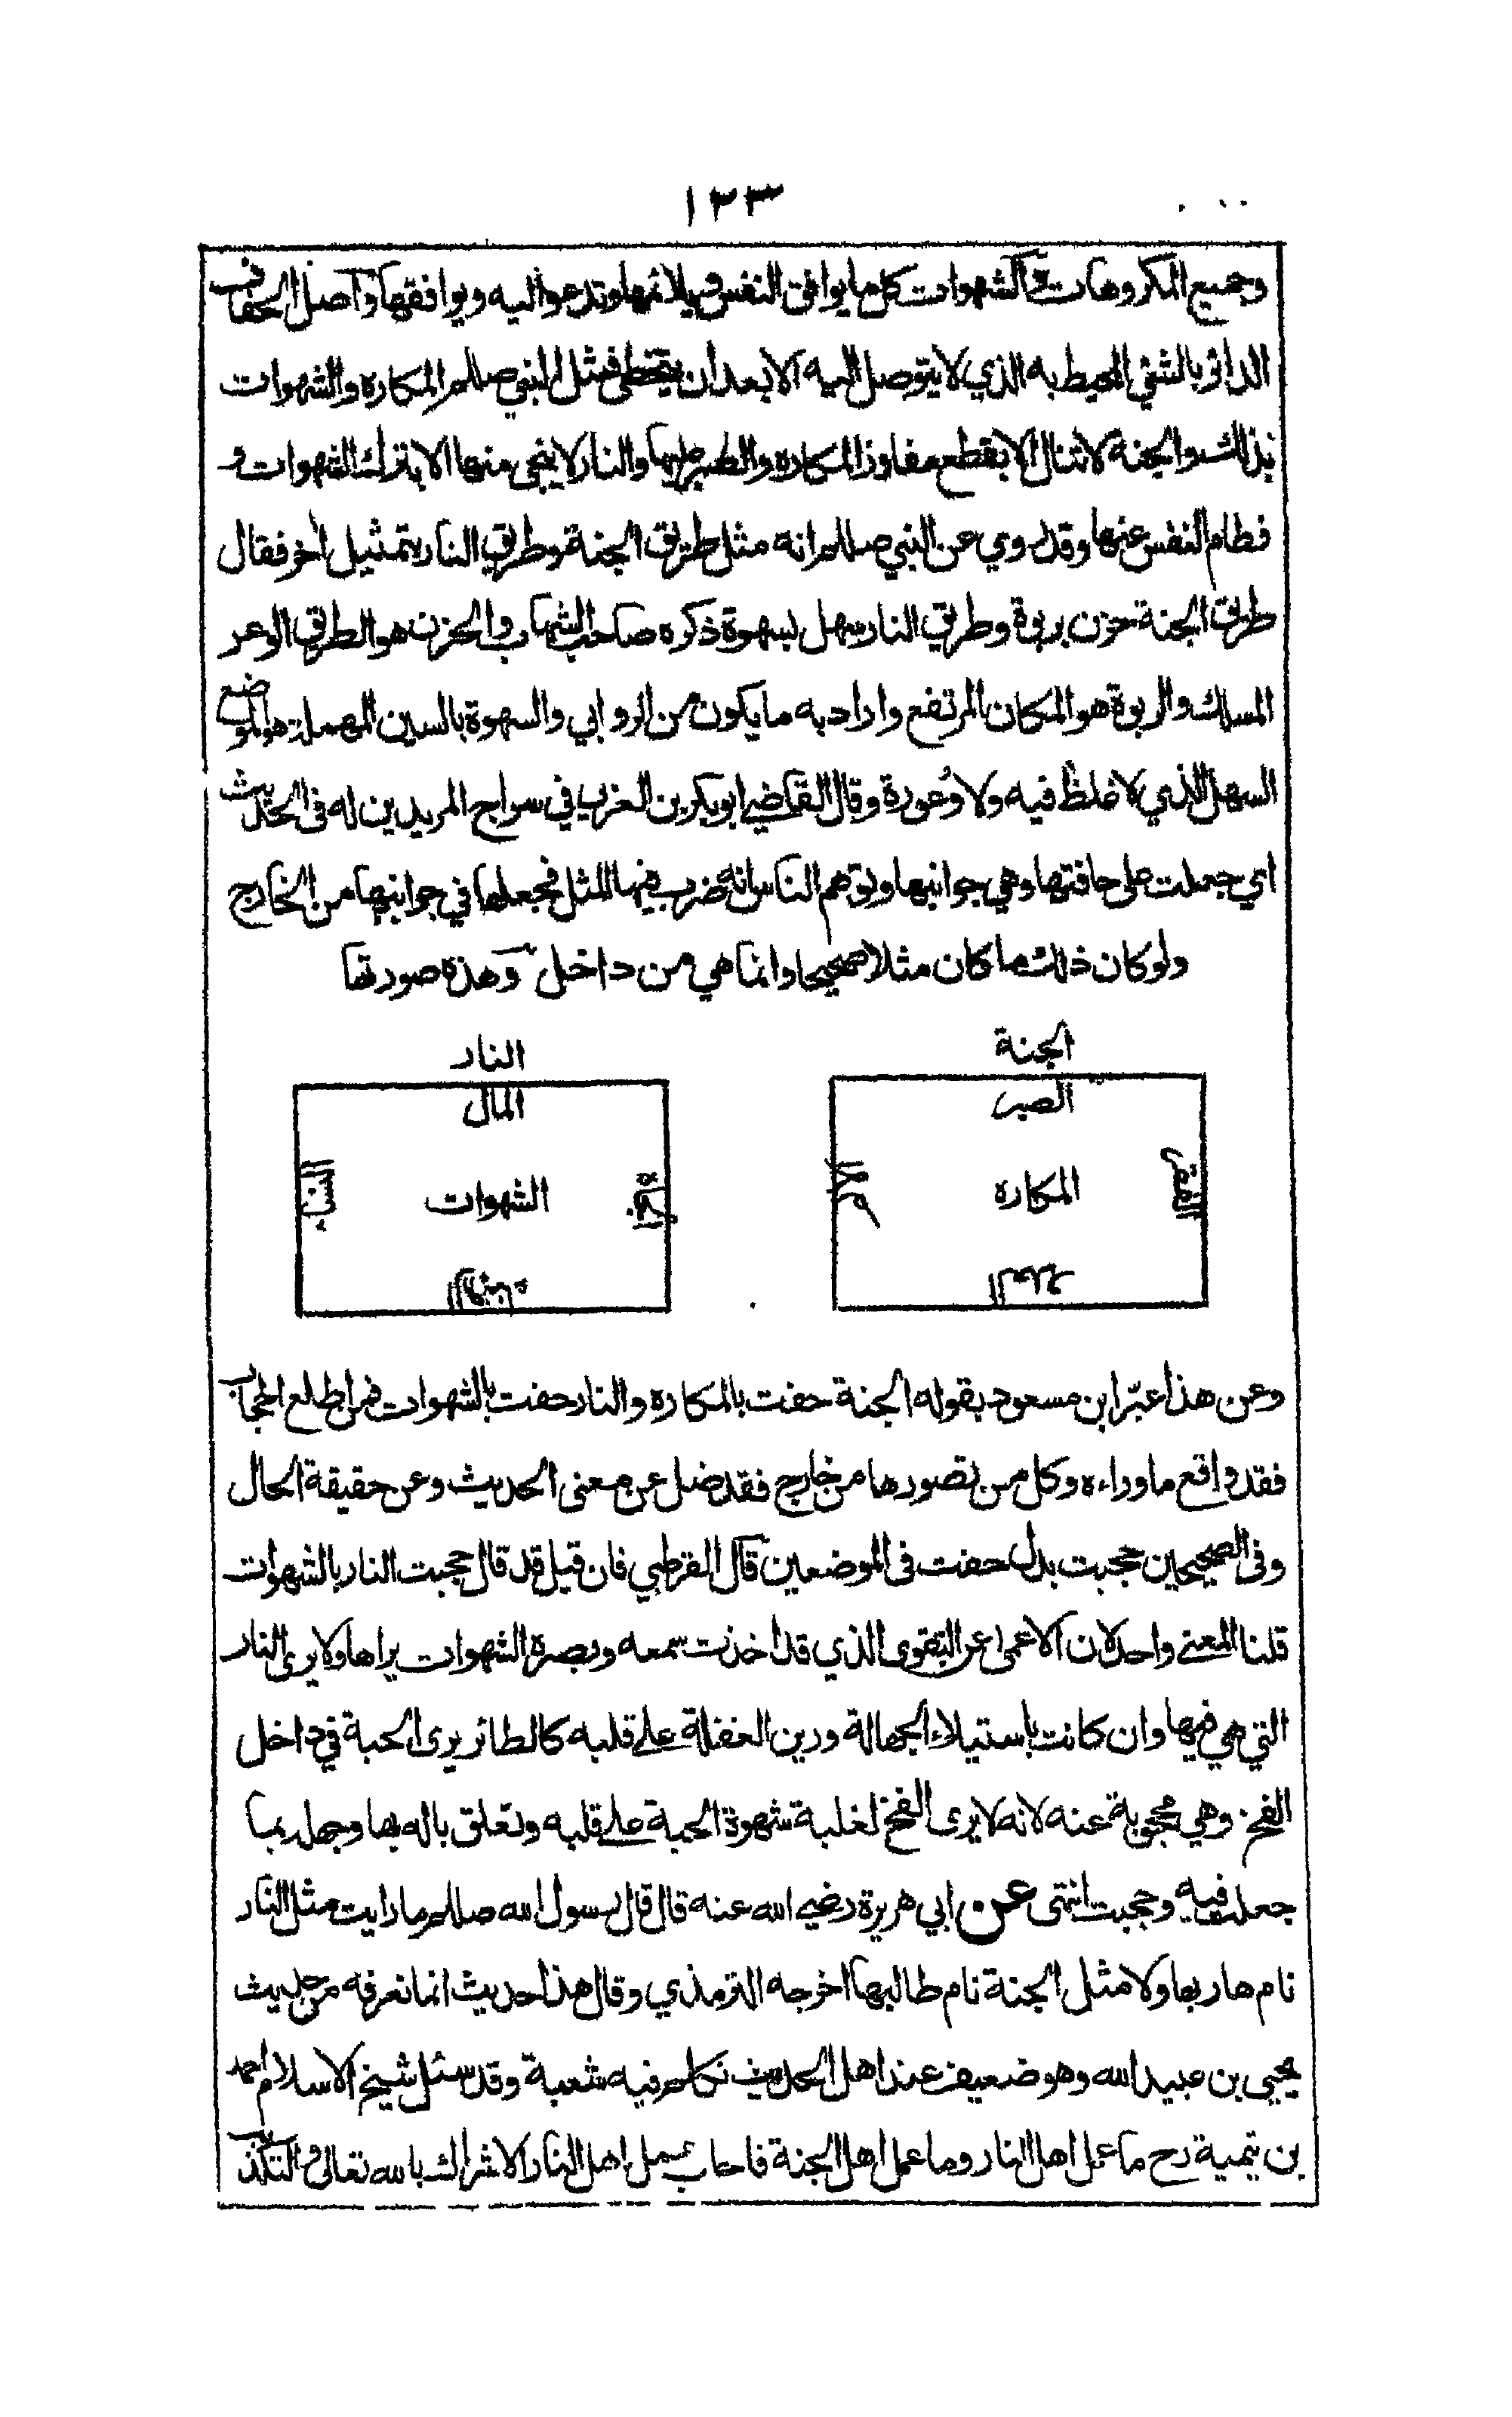 ١٢٣
وجميع المكروهات والشهوات كل ما يوافق النفس ويلائمها وتدعو اليه ويوافقها واصل الحفاف
الدائر بالشئ المحيط به الذي لا يتوصل اليه الا بعد ان يتخطى فمثل النبي صللم المكاره والشهوات
بذلك والجنة لا تنال الا بقطع مفاوز المكاره والصبر عليها والنار لا ينجى منها الا بترك الشهوات و
فطام النفس عنها وقد روي عن النبي صللم انه مثل طريق الجنة وطريق النار بتمثيل اخر فقال
طريق الجنة حزن بربوة وطريق النار سهل بسهوة ذكره صاحب الشهاب والحزن هو الطريق الوعر
المسلك والربوة هو المكان المرتفع واراد به ما يكون من الروابي والسهوة بالسين المهملة هو الموضع
السهل الذي لا غلظ فيه ولا وُعورة وقال القاضي ابو بكر بن العربي في سراج المريدين له فى الحديث
اي جعلت على حافتها وهي جوانبها وتوهم الناس انه ضرب فيها المثل فجعلها في جوانبها من الخارج
ولو كان ذلك ما كان مثلا صحيحا وانما هي من داخل وهذه صورتها
الجنة
النار
الصبر
المال
المكاره
الشهوات
النساء
وعن هذا عبّر ابن مسعود بقوله الجنة حفت بالمكاره والنار حفت بالشهوات فمن اطلع الحجاب
فقد واقع ما وراءه وكل من تصورها من خارج فقد ضل عن معنى الحديث وعن حقيقة الحال
وفى الصحيحين حجبت بدل حفت فى الموضعين قال القرطبي فان قيل قد قال حجبت النار بالشهوات
قلنا المعنى واحد لان الاعمى عن التقوى الذي قد اخذت سمعه وبصره الشهوات يراها ولا يرى النار
التي هي فيها وان كانت باستيلاء الجهالة ورين الغفلة على قلبه كالطائر يرى الحبة في داخل
الفخ وهي محجوبة عنه لانه لا يرى الفخ لغلبة شهوة الحبة على قلبه وتعلق باله بها وجهله بما
جعلت فيه وحجبت انتهى عن ابي هريرة رضي الله عنه قال قال رسول الله صللم ما رايت مثل النار
نام هاربها ولا مثل الجنة نام طالبها اخرجه الترمذي وقال هذا حديث انما نعرفه من حديث
يحيى بن عبيد الله وهو ضعيف عند اهل الحديث تكلم فيه شعبة وقد سئل شيخ الاسلام احمد
بن تيمية رح ما عمل اهل النار وما عمل اهل الجنة فاجاب عمل اهل النار الاشراك بالله تعالى والتكذيب